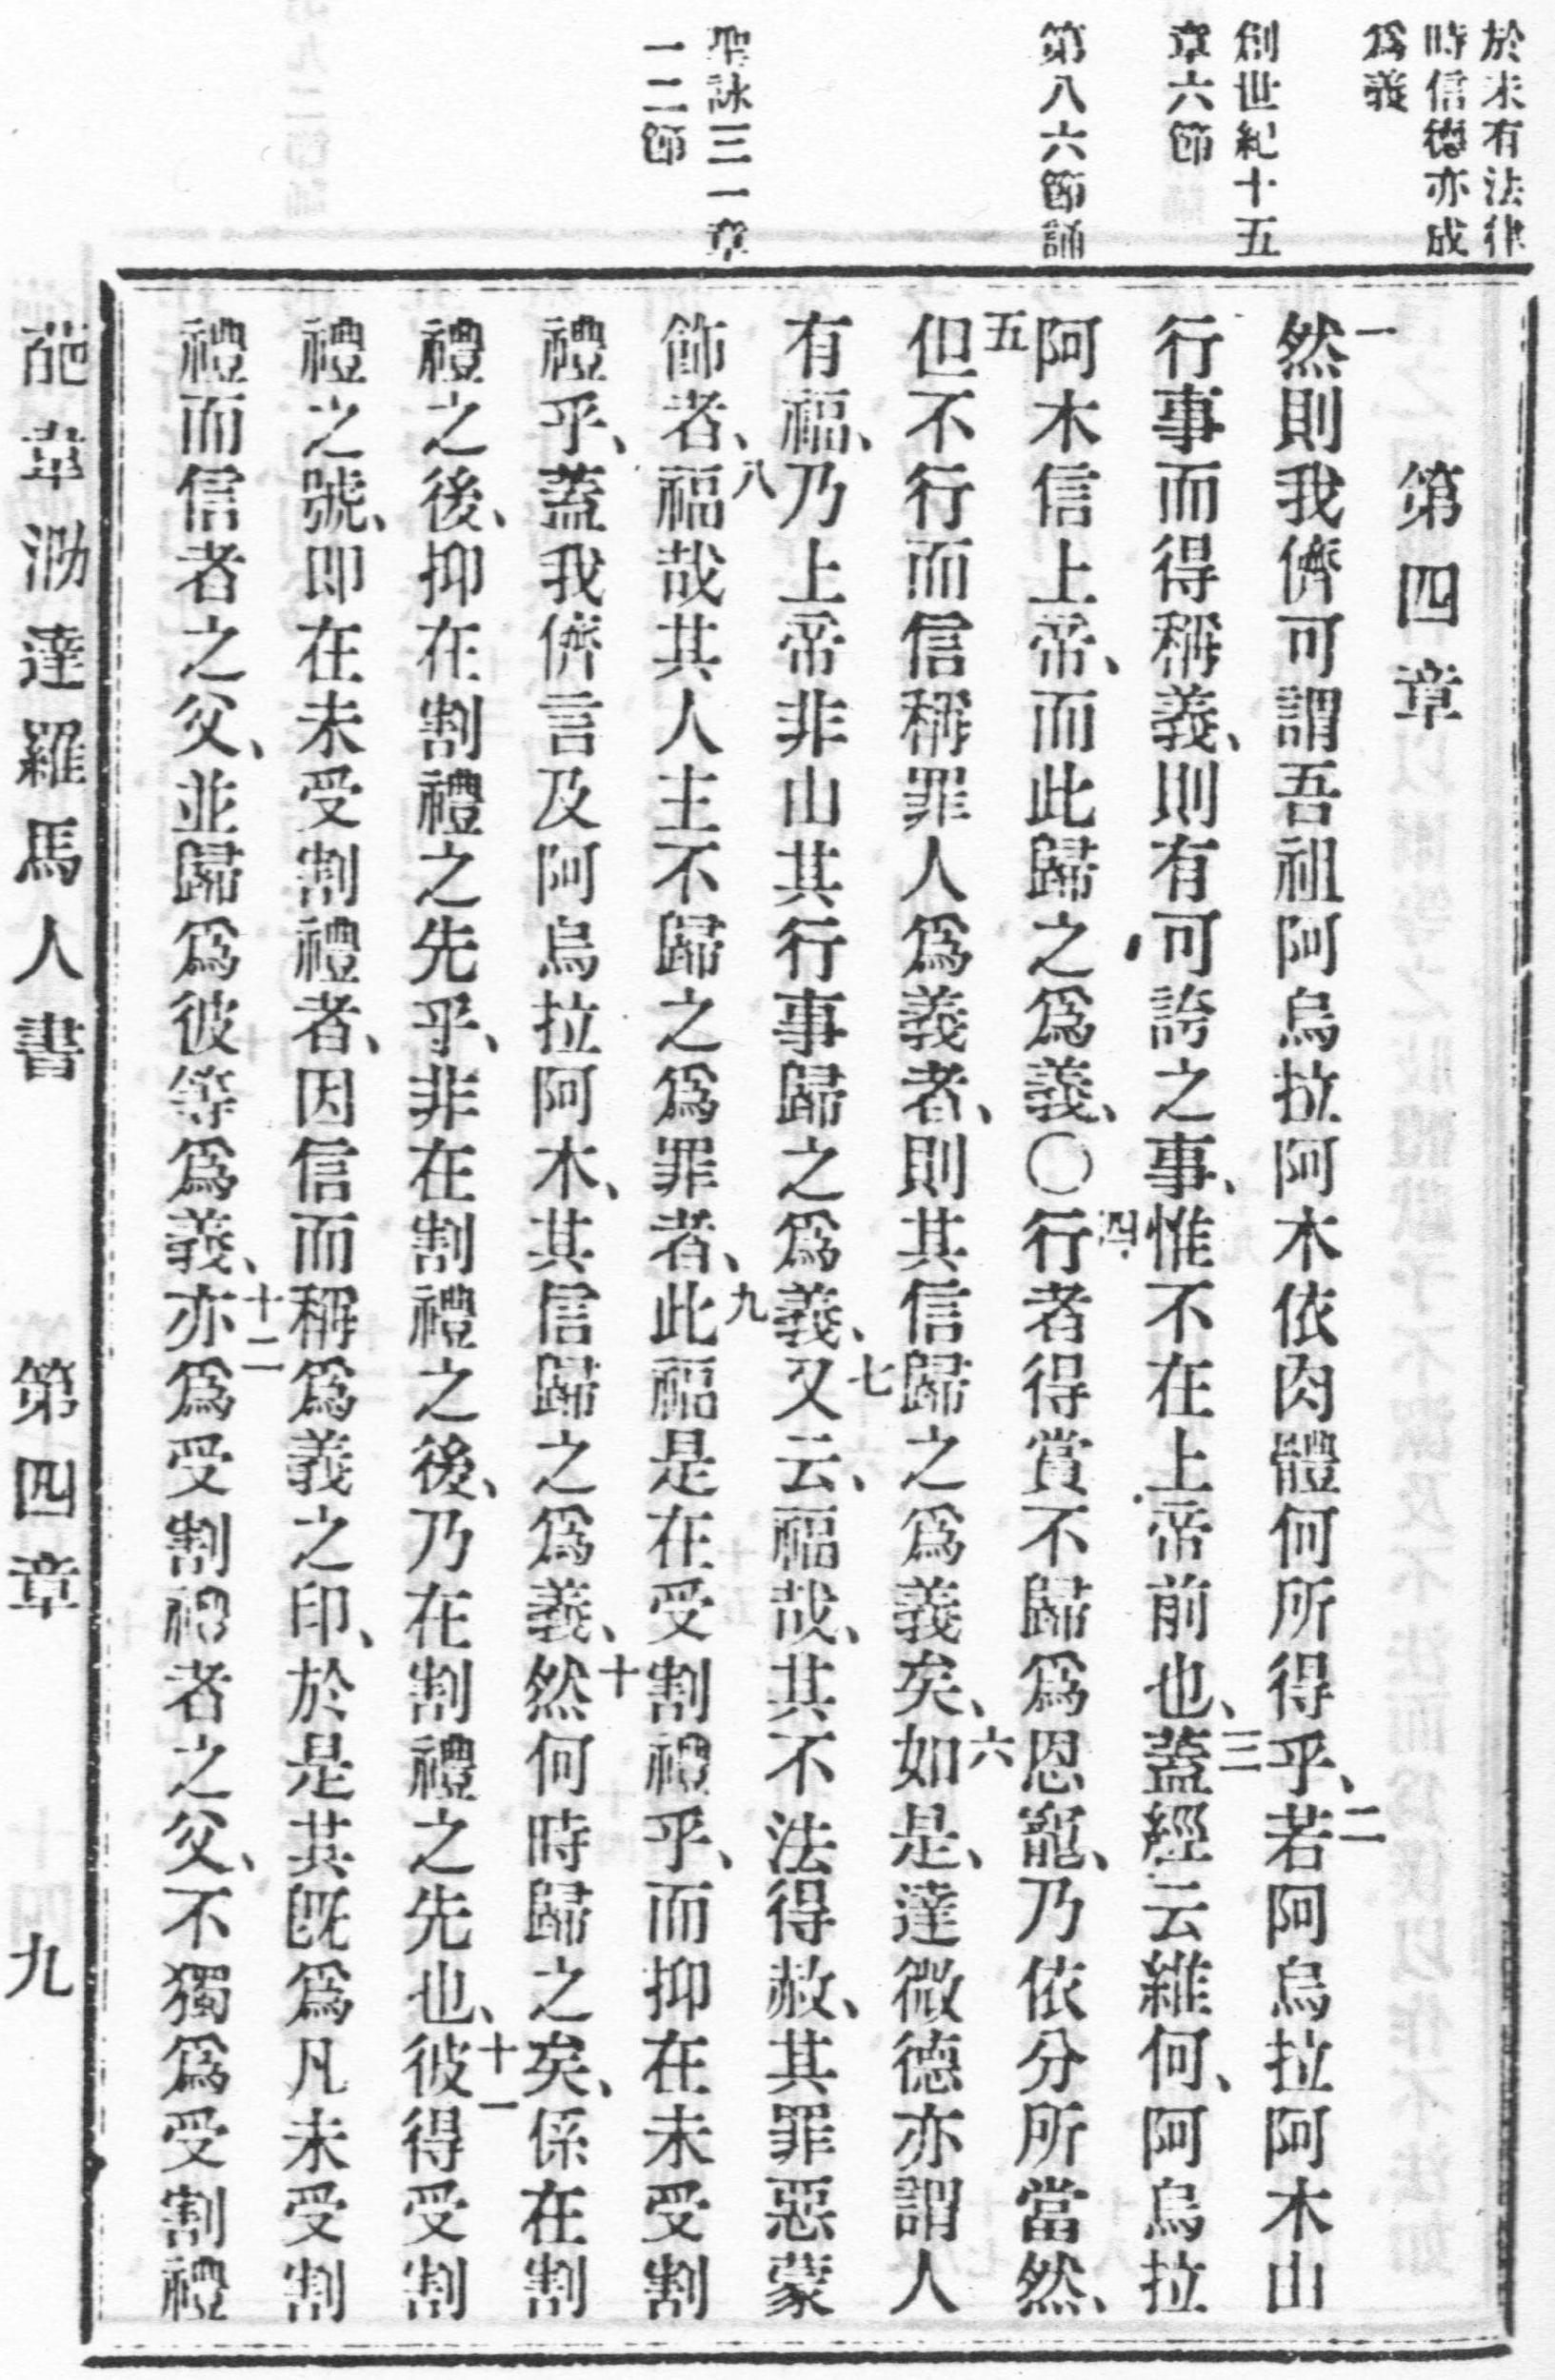 於未有法律
時信德亦成
爲義
創世紀十五
章六節
第八六節誦
聖詠三一章
一二節
第四章
一然則我儕可謂吾祖阿烏拉阿木依肉體何所得乎、二若阿烏拉阿木由
行事而得稱義、則有可誇之事、惟不在上帝前也、三蓋經云維何、阿烏拉
阿木信上帝、而此歸之爲義、〇四行者得賞不歸爲恩寵、乃依分所當然、
五但不行而信稱罪人爲義者、則其信歸之爲義矣、六如是、達微德亦謂人
有福、乃上帝非由其行事歸之爲義、七又云、福哉、其不法得赦、其罪惡蒙
飾者、八福哉其人主不歸之爲罪者、九此福是在受割禮乎、而抑在未受割
禮乎、蓋我儕言及阿烏拉阿木、其信歸之爲義、十然何時歸之矣、係在割
禮之後、抑在割禮之先乎、非在割禮之後、乃在割禮之先也、十一彼得受割
禮之號、即在未受割禮者、因信而稱爲義之印、於是其旣爲凡未受割
禮而信者之父、並歸爲彼等爲義、十二亦爲受割禮者之父、不獨爲受割禮
葩韋泐達羅馬人書 第四章 九